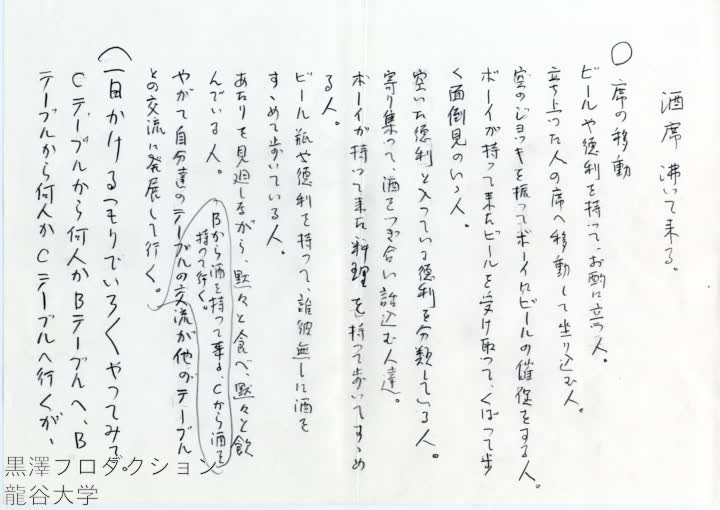 酒席 沸いて来る。
○ 席の移動
ビールや徳利を持って、お酌に立つ人。
立ち上った人の席へ移動して坐り込む人。
空のジョッキを振ってボーイにビールの催促をする人。
ボーイが持って来たビールを受け取って、くばって歩
く面倒見のいゝ人。
空いた徳利と入っている徳利を分類している人。
寄り集って酒をつぎ合い話込む人達。
ボーイが持って来た料理を持って歩いてすゝめ
る人。
ビール瓶や徳利を持って、誰彼無しに酒を
すゝめて歩いている人。
あたりを見廻しながら、黙々と食べ、黙々と飲
んでいる人。
Bから酒を持って来る、Cから酒を
持って行く。
やがて自分達のテーブルの交流が他のテーブル
との交流に発展して行く。
(一日かけるつもりでいろ〱やってみて。
Cテーブルから何人かBテーブルへ、B
テーブルから何人かCテーブルへ行くが、
黒澤プロダクション
龍谷大学